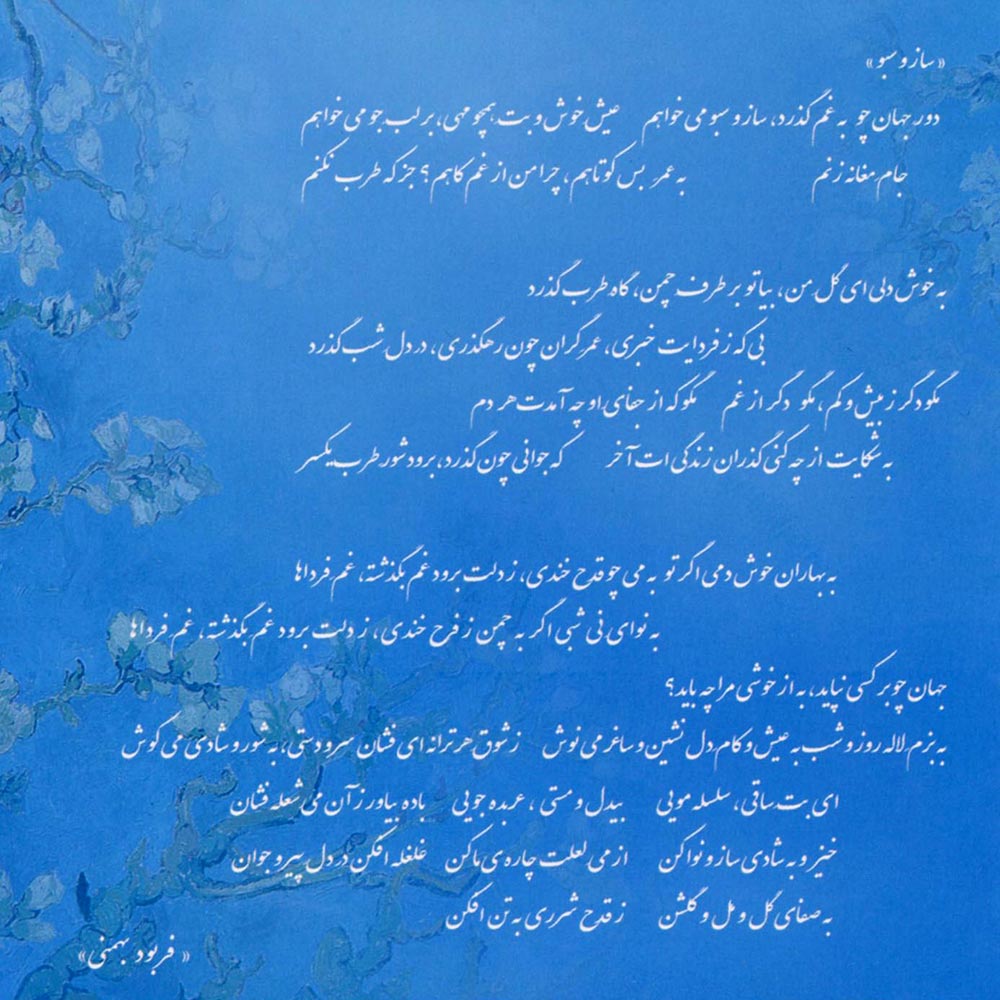 « ساز و سبو »
دور جهان چو به غم گذرد، ساز و سبو می خواهم عیش خوش و بت همچو مهی، بر لب جو می خواهم
جام مغانه زنم به عمر بس کوتاهم، چرا من از غم کاهم؟ جز که طرب نکنم
به خوش دلی ای گل من، بیا تو بر طرف چمن، گاه طرب گذرد
بی که ز فردایت خبری، عمر گران چون رهگذری، در دل شب گذرد
مگو دگر ز بیش و کم، مگو دگر از غم مگو که از جفای او چه آمدت هر دم
به شکایت از چه کنی گذران زندگی ات آخر که جوانی چون گذرد، برود شور طرب یکسر
به بهاران خوش دمی اگر تو به می چو قدح خندی، ز دلت برود غم بگذشته، غم فرداها
به نوای نی شبی اگر به چمن ز فرح خندی، ز دلت برود غم بگذشته، غم فرداها
جهان چو بر کسی نپاید، به از خوشی مرا چه باید؟
به بزم لاله روز و شب به عیش و کام دل نشین و ساغر می نوش ز شوق هر ترانه ای فشان سر و دستی، به شور و شادی می کوش
ای بت ساقی، سلسله مویی بیدل و مستی، عربده جویی باده بیاور ز آن می شعله فشان
خیز و به شادی ساز و نوا کن از می لعلت چاره ی ما کن غلغله افکن در دل پیر و جوان
به صفای گل و مل و گلشن ز قدح شرری به تن افکن
« فربود بهمنی »